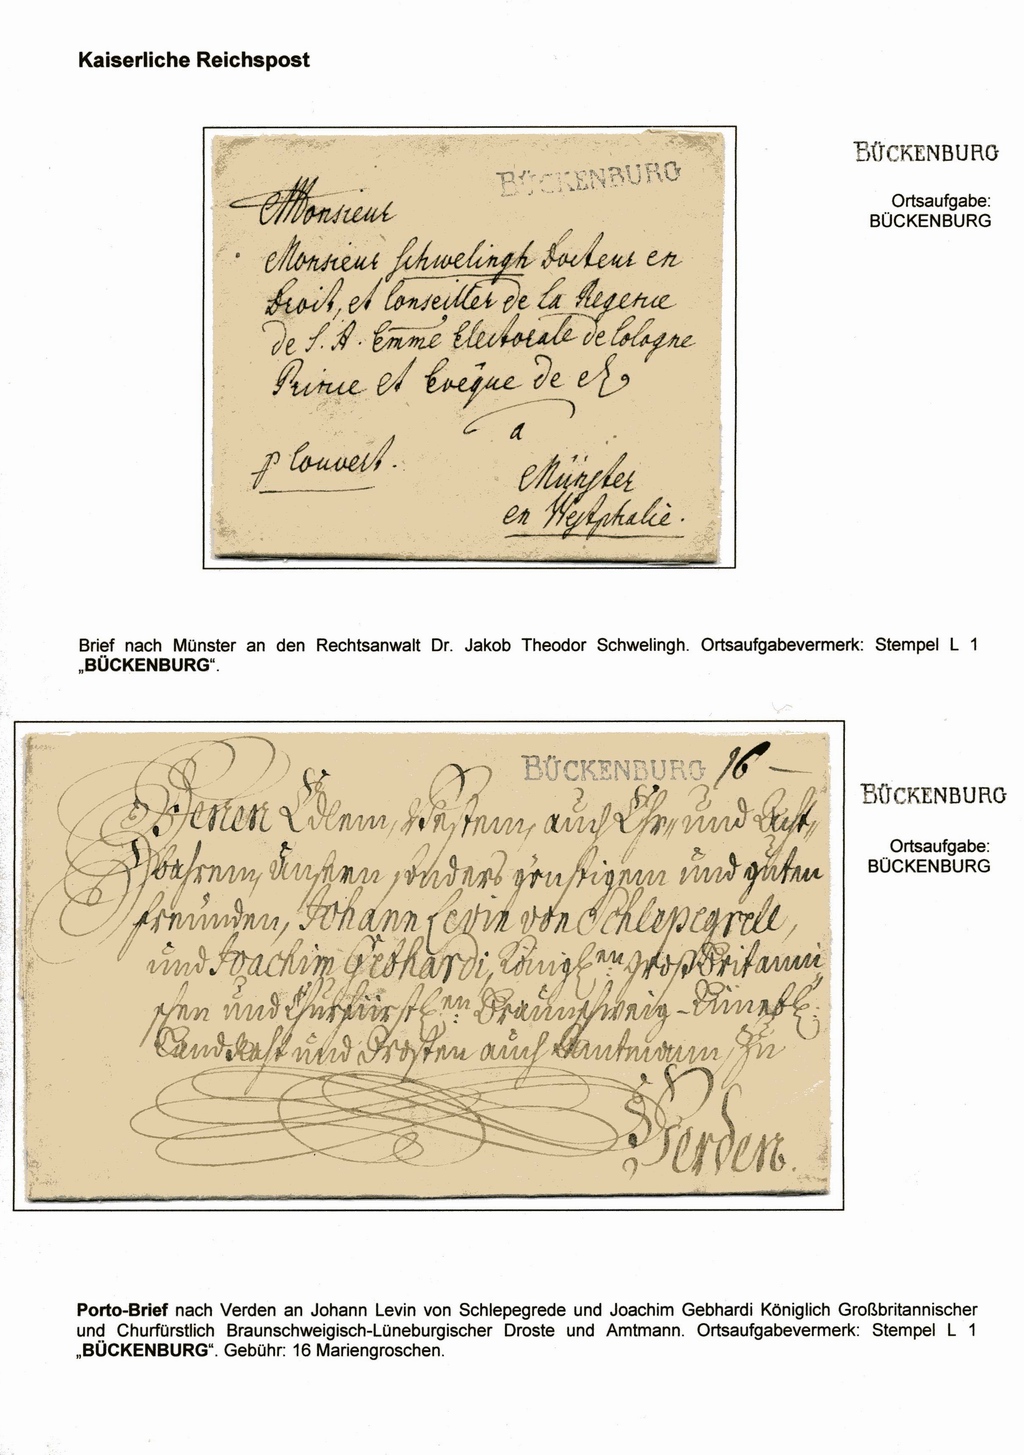 Kaiserliche Reichspost
BÜCKENBURG
Monsieur
Monsieur Schwelingh Docteur en
Droit, et Conseiller de la Regence
de S. A. Emme Electorale de Cologne
Prince et Eveque de
a
p Couvert.
Münster
en Westphalie.
BÜCKENBURG
Ortsaufgabe:
BÜCKENBURG
Brief nach Münster an den Rechtsanwalt Dr. Jakob Theodor Schwelingh. Ortsaufgabevermerk: Stempel L 1
„BÜCKENBURG“.
BÜCKENBURG 16 —
Denen Edlem, Vestem, auch Ehr„ und Acht„
bahrem, Unsern sonders günstigem und guten
freunden, Johann Levin von Schlepegrell,
und Joachim Gebhardi, Königl.en großBritanni„
schen und Churfürstl.en Braunschweig-Lünebl.
LandRaht und Drosten auch Amtmann, zu
Verden.
BÜCKENBURG
Ortsaufgabe:
BÜCKENBURG
Porto-Brief nach Verden an Johann Levin von Schlepegrede und Joachim Gebhardi Königlich Großbritannischer
und Churfürstlich Braunschweigisch-Lüneburgischer Droste und Amtmann. Ortsaufgabevermerk: Stempel L 1
„BÜCKENBURG“. Gebühr: 16 Mariengroschen.